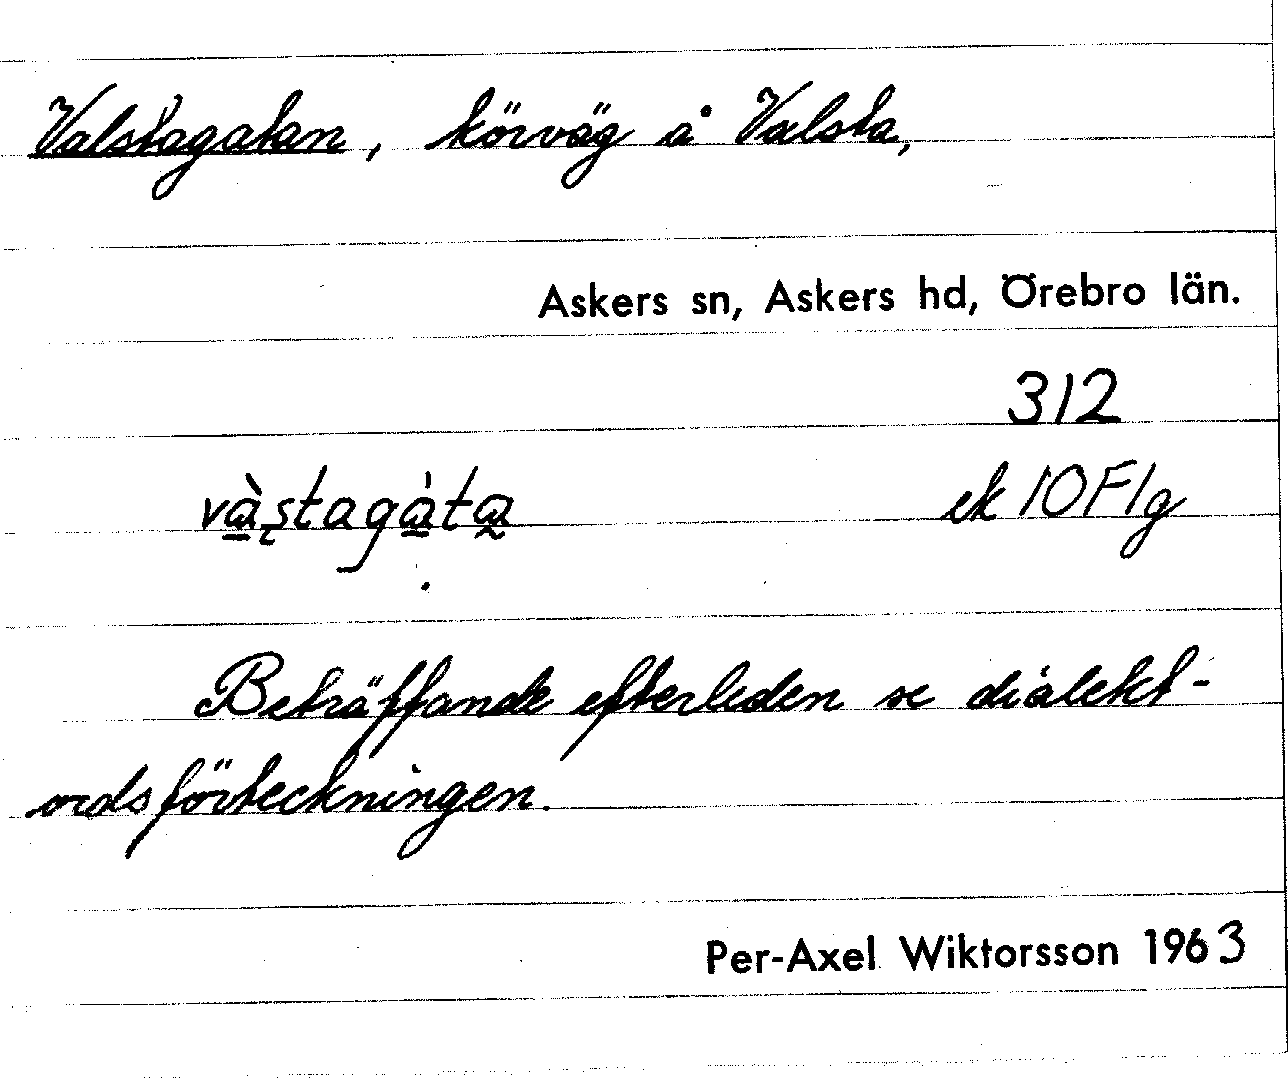 Valstagatan, körväg å Valsta,
Askers sn, Askers hd, Örebro län.
312
và̱s̨tagà̱ta̰ ek 10F1g
Beträffande efterleden se dialekt-
ordsförteckningen.
Per-Axel Wiktorsson 1963